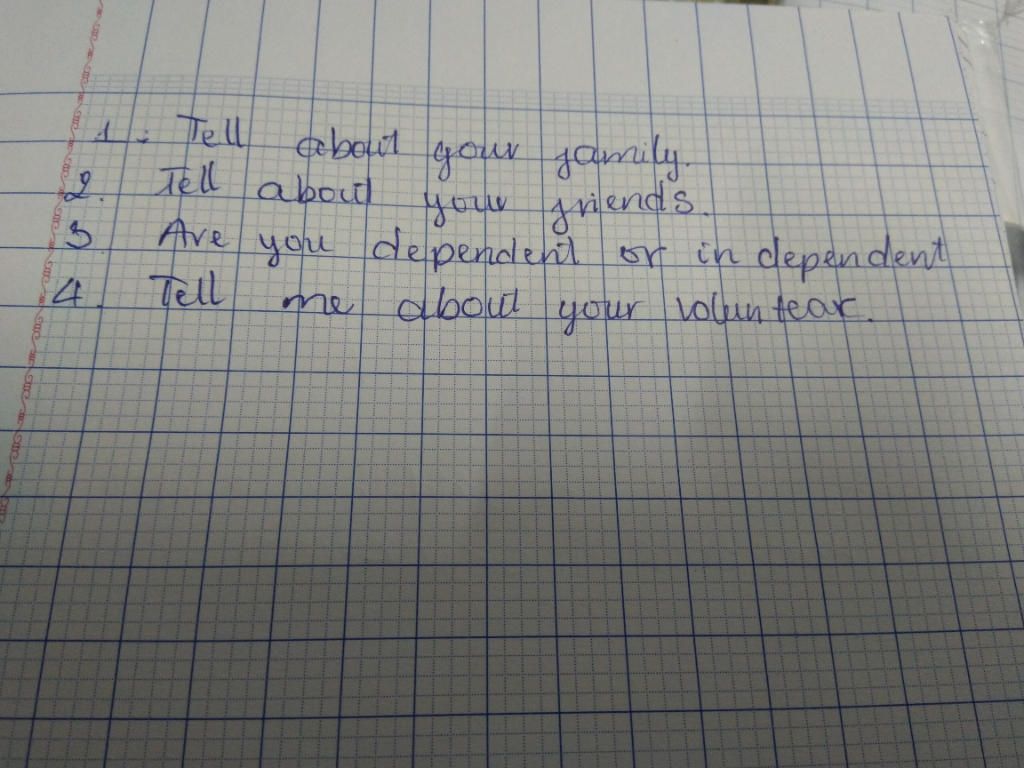 1. Tell about your family.
2. Tell about your friends.
3 Are you dependent or in dependent
4. Tell me about your voluntear.